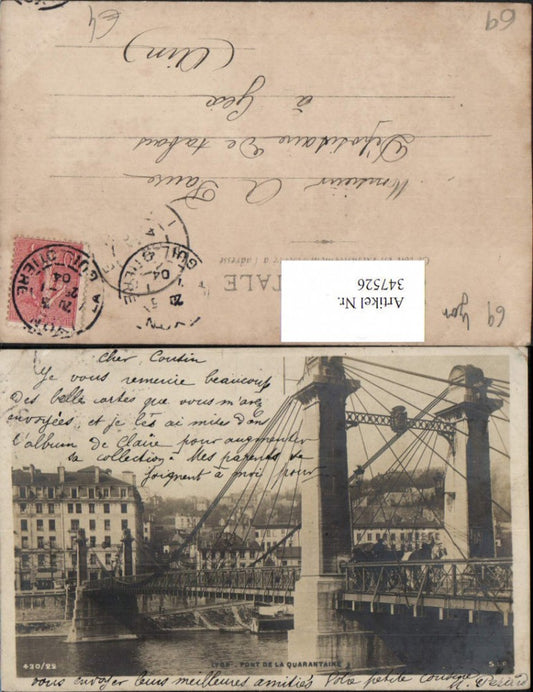 69
64
(Ain)
à Gex
Dépositaire de tabacs
Monsieur A
CARTE POSTALE
347526
Artikel Nr.
69 Lyon
LA GUILLOTIERE
04
GUILLOTIERE
04
cher Cousin
Je vous remercie beaucoup
des belle cartes que vous m'avez
envoyées, et je les ai mises dans
l'album de Claire pour augmenter
sa collection. Mes parents se
joignent à moi pour
420/22
LYON - PONT DE LA QUARANTAINE
vous envoyer leurs meilleures amitiés Votre petite cousine